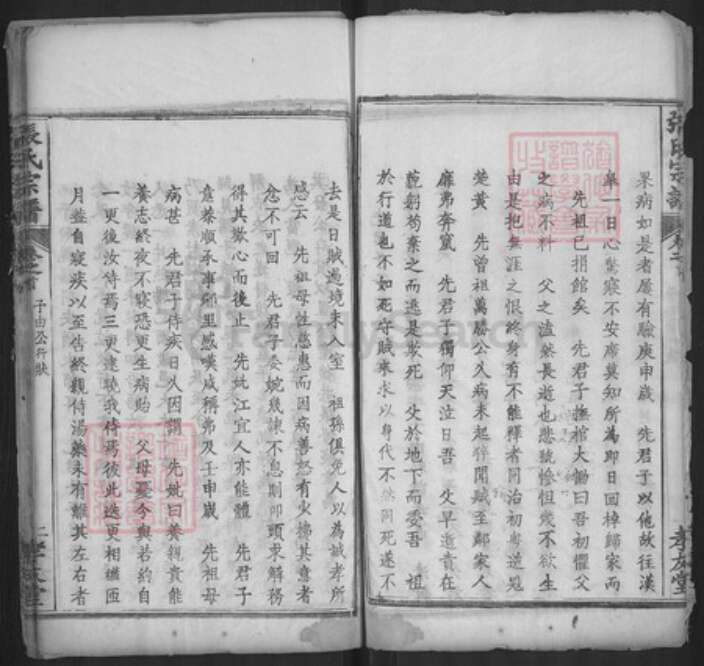 張氏宗譜
孝友堂
果病如是者屢有驗庚申歲　先君子以他故往漢
皋一日心驚寢不安席莫知所為即日回棹歸家而
先祖已捐館矣　先君子撫棺大慟曰吾初懼父
之病不料　父之溘然長逝也悲號慘怛幾不欲生
由是抱無涯之恨終身有不能釋者同治初粵逆冦
楚黄　先曾祖萬勝公久病未起猝聞賊至鄰家人
靡弗奔竄　先君子獨仰天泣曰吾　父早逝責在
藐躬苟棄之而逃是欺死　父於地下而委吾　祖
於行道也不如死守賊來求以身代不然同死遂不
去是日賊過境未入室　祖孫俱免人以為誠孝所
感云　先祖母性慈惠而因病善怒有少拂其意者
忿不可回　先君子委婉幾諫不息則叩頭求解務
得其歡心而後止　先妣江宜人亦能體　先君子
意養順承事鄰里感嘆咸稱弗及壬申歲　先祖母
病甚　先君子侍疾日久因謂　先妣曰養親貴能
養志終夜不寢恐更生病貽　父母憂今與若約自
一更後汝侍焉三更達曉我侍焉彼此迭更相繼匝
月蓋自寢疾以至告終親侍湯藥未有離其左右者
張氏宗譜
子由公行狀
二
孝友堂